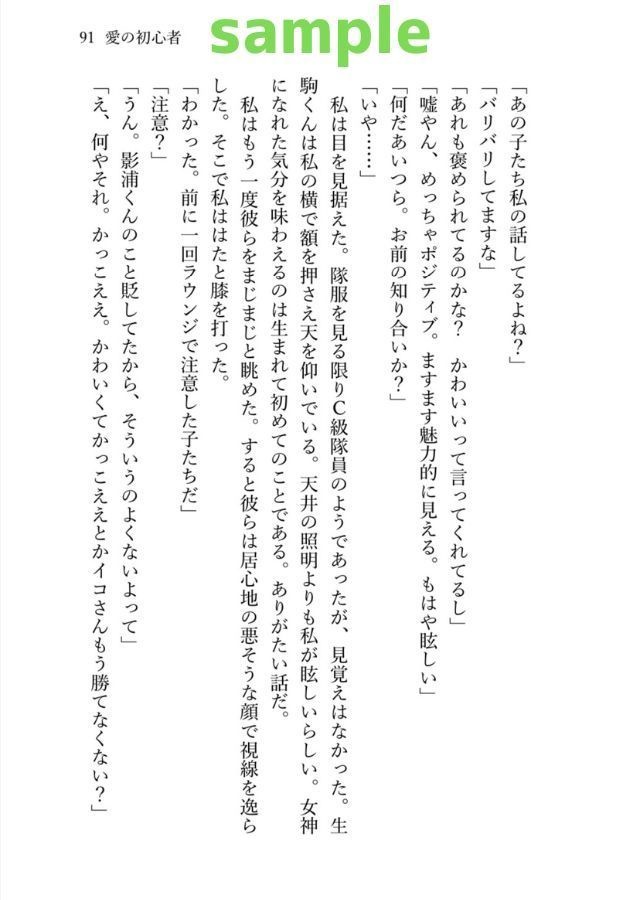 sample
91 愛の初心者
「あの子たち私の話してるよね？」
「バリバリしてますな」
「あれも褒められてるのかな？　かわいいって言ってくれてるし」
「嘘やん、めっちゃポジティブ。ますます魅力的に見える。もはや眩しい」
「何だあいつら。お前の知り合いか？」
「いや……」
　私は目を見据えた。隊服を見る限りＣ級隊員のようであったが、見覚えはなかった。生
駒くんは私の横で額を押さえ天を仰いでいる。天井の照明よりも私が眩しいらしい。女神
になれた気分を味わえるのは生まれて初めてのことである。ありがたい話だ。
　私はもう一度彼らをまじまじと眺めた。すると彼らは居心地の悪そうな顔で視線を逸ら
した。そこで私ははたと膝を打った。
「わかった。前に一回ラウンジで注意した子たちだ」
「注意？」
「うん。影浦くんのこと貶してたから、そういうのよくないよって」
「え、何やそれ。かっこええ。かわいくてかっこええとかイコさんもう勝てなくない？」